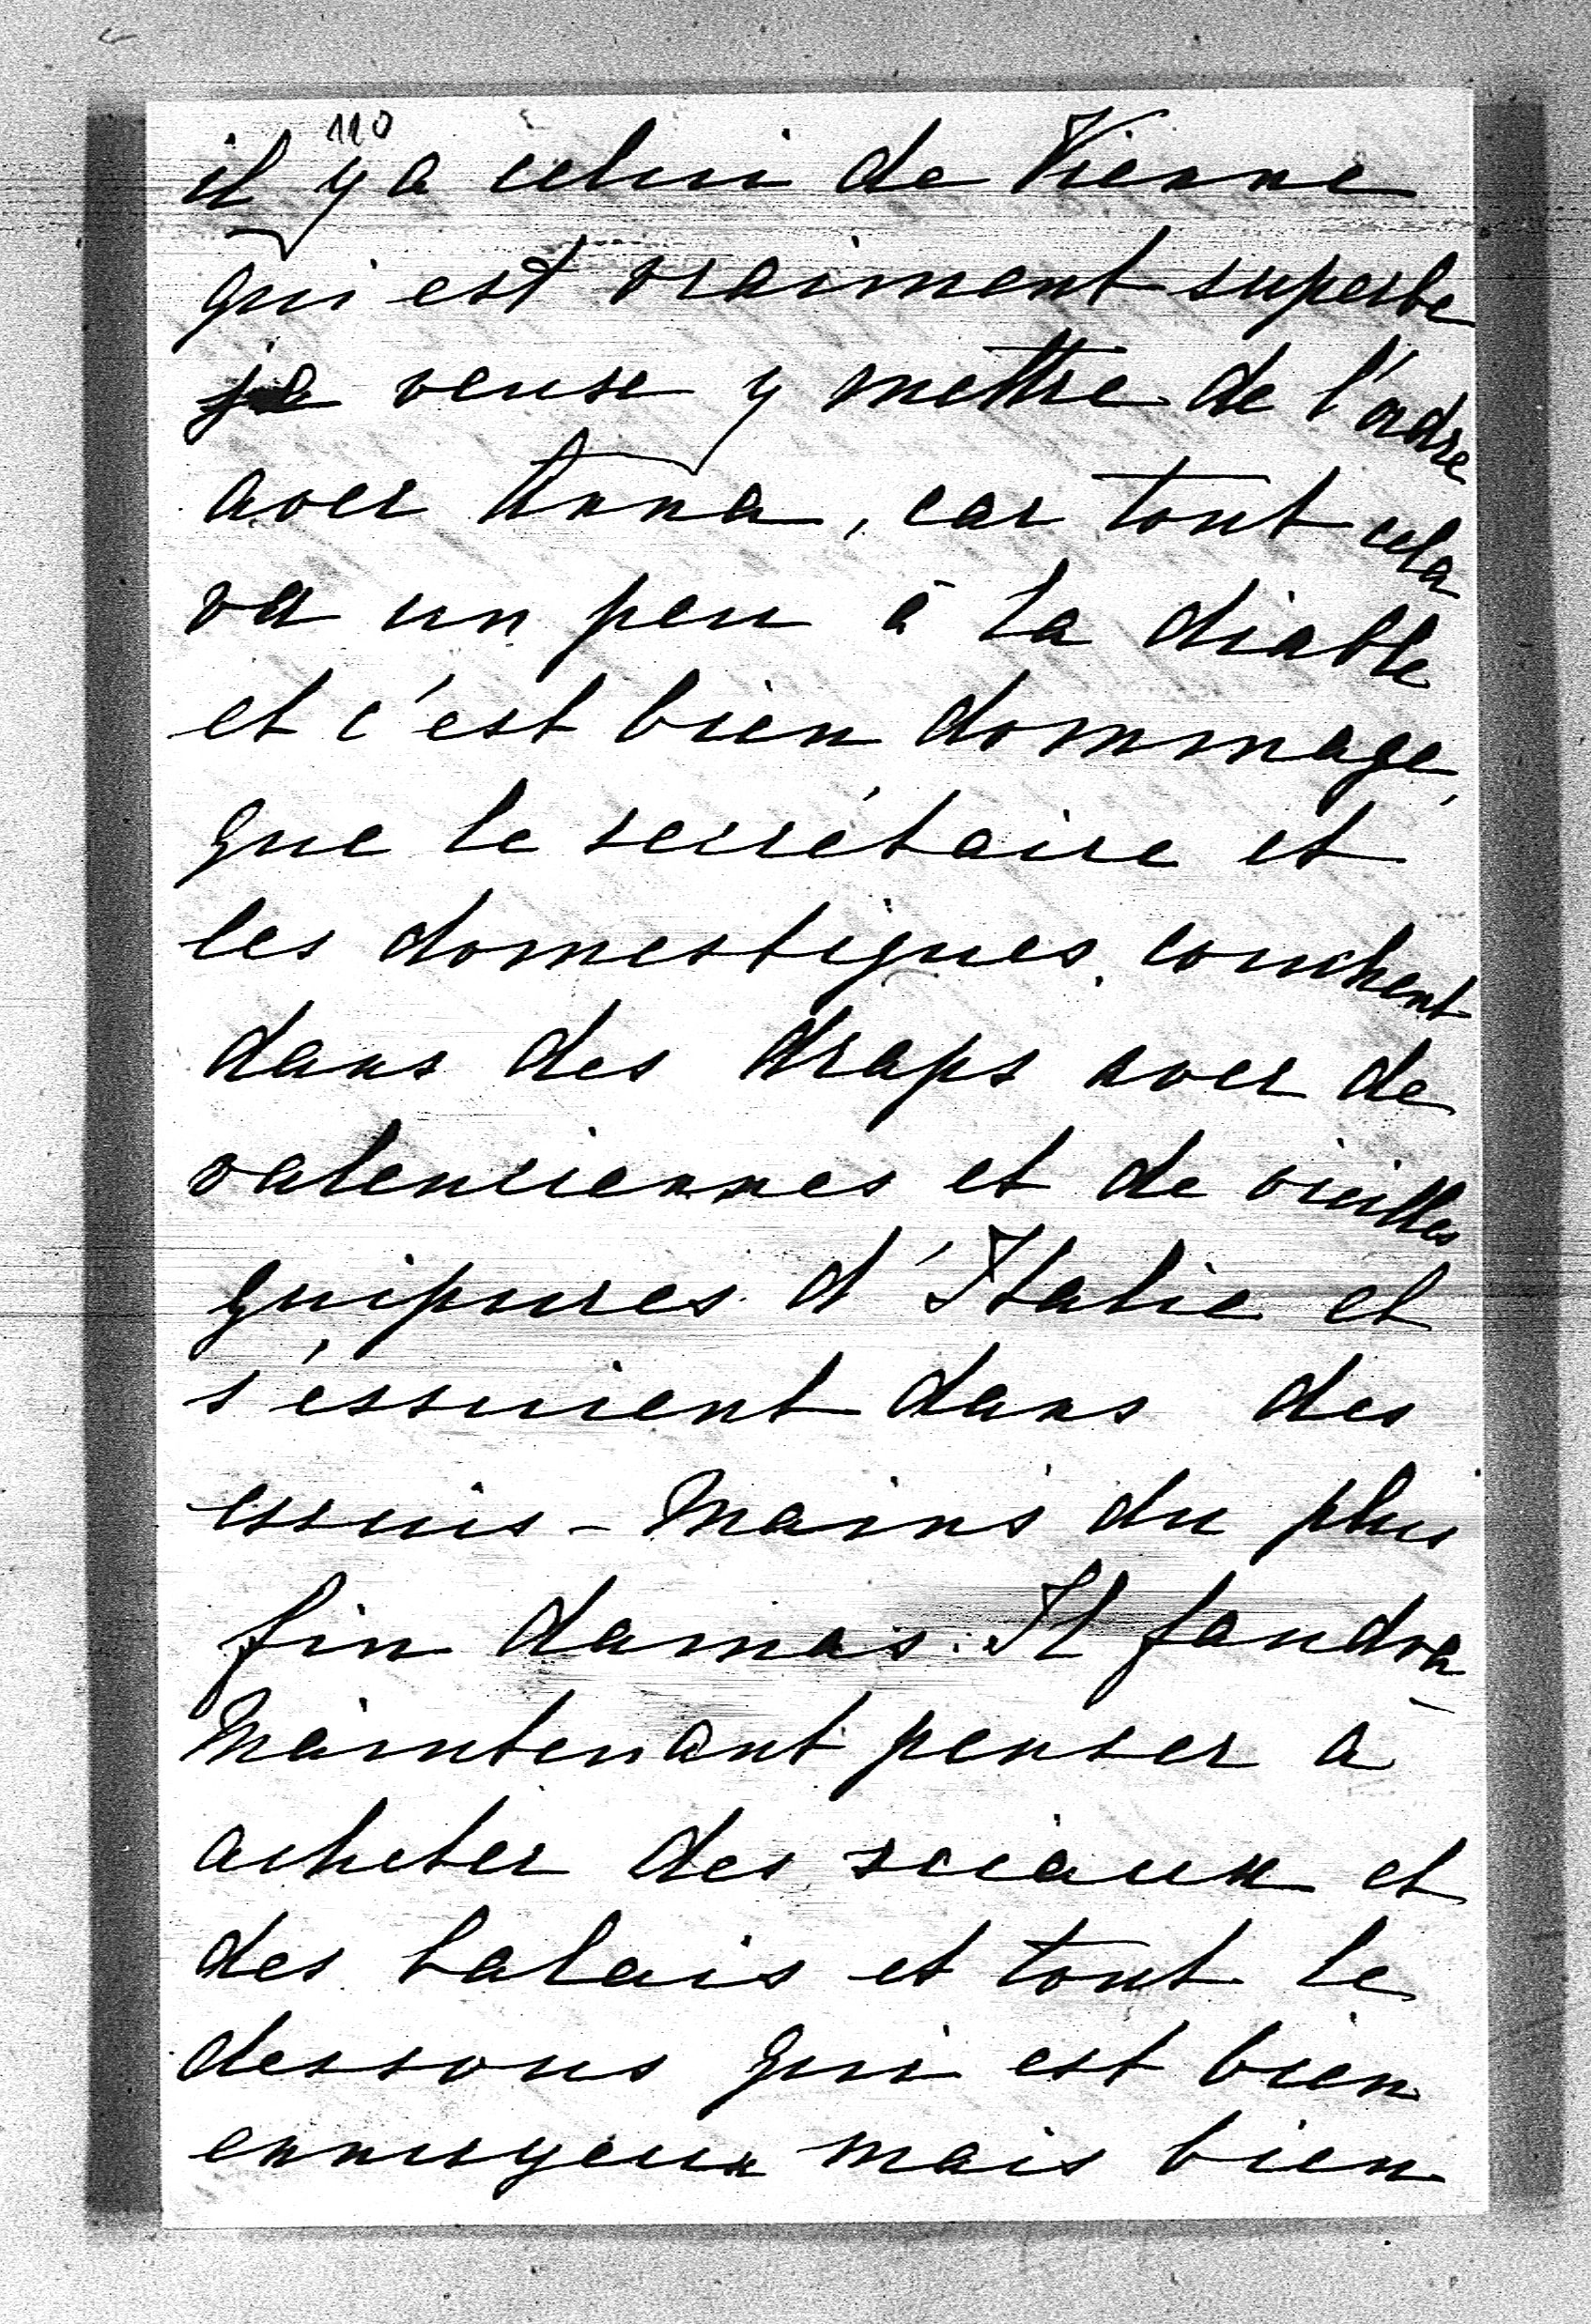 110
il y a celui de Vienne
qui est vraiment superbe
je veuse y mettre de l'ordre
avec Anna, car tout cela
va un peu à la diable
et c'est bien dommage,
que le secrétaire et
les domestiques, couchent
dans des draps avec de
valenciennes et de vieilles
guipures d'Italie et
s'éssuient dans des
essuis-mains du plus
fin damas. Il faudra
maintenant penser à
acheter des sciaux et
des balais et tout le
dessous qui est bien
ennuyeux mais bien